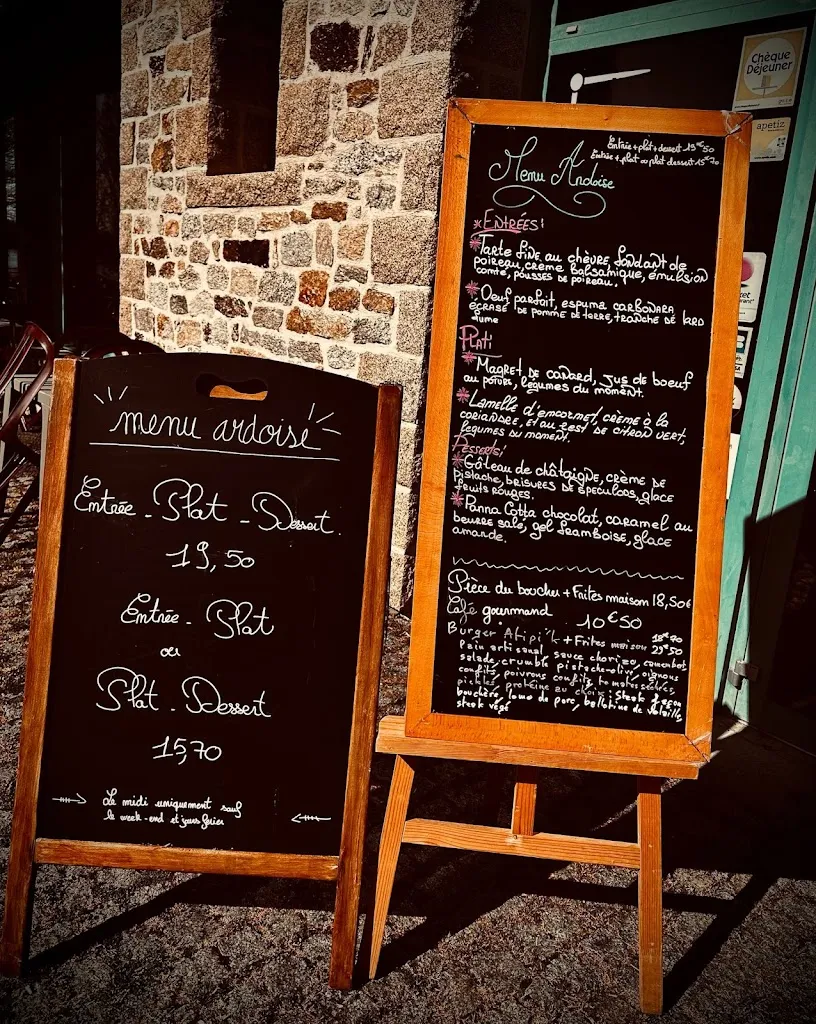 menu ardoise
Entrée - Plat - Dessert.
19,50
Entrée - Plat
ou
Plat - Dessert
15,70
Le midi uniquement sauf
le week-end et jours férier
Chèque
Déjeuner
apetiz
Entrée + plat + dessert 19€50
Entrée + plat ou plat dessert 15€70
Menu Ardoise
* ENTRÉES:
* Tarte fine au chèvre, fondant de
poireau, crème balsamique, émulsion
comté, pousses de poireau.
* Oeuf parfait, espuma carbonara
écrasé de pomme de terre, tranche de lard
fumé
Plat:
* Magret de canard, jus de boeuf
au poivre, légumes du moment.
* Lamelle d'encornet, crème à la
coriandre, et au zest de citron vert,
légumes du moment.
Desserts:
* Gâteau de châtaigne, crème de
pistache, brisures de spéculoos, glace
fruits rouges.
* Panna Cotta chocolat, caramel au
beurre salé, gel framboise, glace
amande.
Pièce du boucher + Frites maison 18,50€
Café gourmand 10€50
Burger + Frites maison
Pain artisanal, sauce chorizo, camembert,
salade, crumble pistache-olive, oignons
confits, poivrons confits, tomates séchées,
pickles protéine au choix: Steak façon
bouchère, lomo de porc, ballotine de volaille,
steak végé